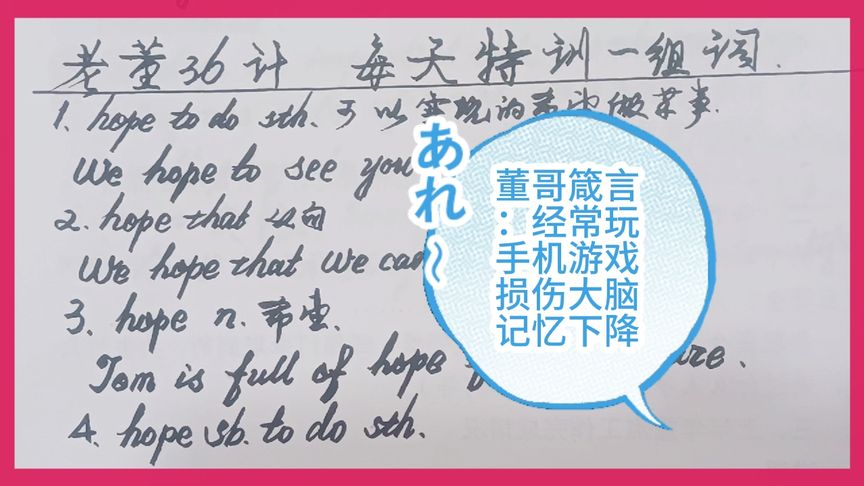 老董36计 每天特训一组词.
1. hope to do sth. 可以实现的希望做某事.
We hope to see you
2. hope that 从句
We hope that we can
3. hope n. 希望.
Tom is full of hope
4. hope sb. to do sth.
あれ~
董哥箴言
：经常玩
手机游戏
损伤大脑
记忆下降